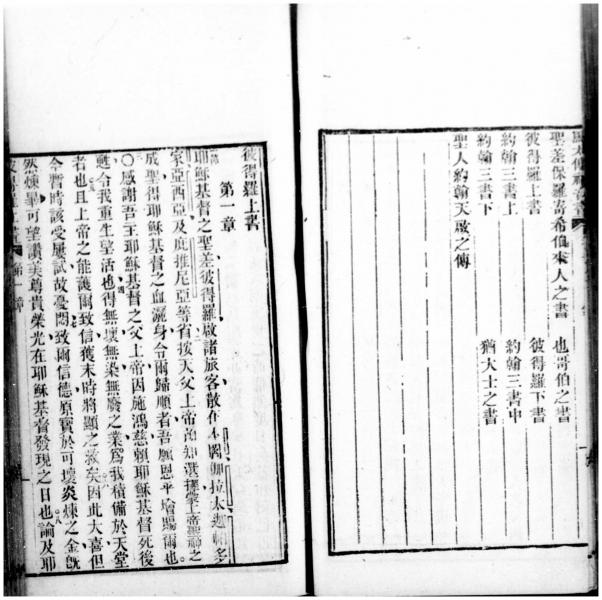 聖差保羅寄希伯來人之書 也哥伯之書
彼得羅上書 彼得羅下書
約翰三書上 約翰三書中
約翰三書下 猶大士之書
聖人約翰天啟之傳
彼得羅上書
第一章
耶穌基督之聖差彼得羅啟諸旅客散在本都伽拉太迦帕多
家亞西亞及庇推尼亞等省按天父上帝預知選擇蒙上帝聖神之
成聖得耶穌基督之血灑身令爾歸順者吾願恩平增賜爾也。
〇感謝吾主耶穌基督之父上帝因施鴻慈賴耶穌基督死後
甦令我重生望活也得無壞無染無廢之業為我積備於天堂
者也且上帝之能護爾致信獲末時將顯之救矣因此大喜但
今暫時該受屢試故憂悶致爾信德原寶於可壞炎煉之金旣
然煉畢可望讚美尊貴榮光在耶穌基督發現之日也論及耶